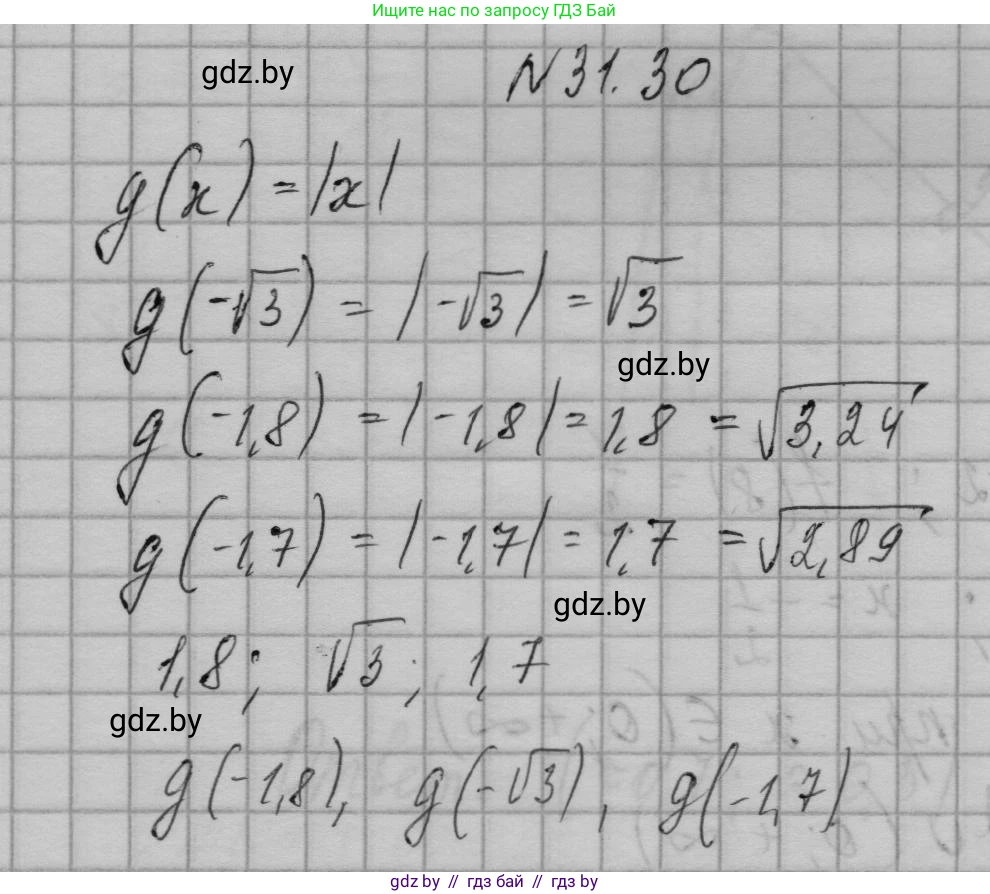 Ищите нас по запросу ГДЗ Бай
gdz.by
№31.30
g(x) = |x|
g(-√3) = |-√3| = √3
gdz.by
g(-1,8) = |-1,8| = 1,8 = √3,24
g(-1,7) = |-1,7| = 1,7 = √2,89
gdz.by
1,8; √3; 1,7
gdz.by
g(-1,8), g(-√3), g(-1,7)
gdz by // гдз бай // гдз by